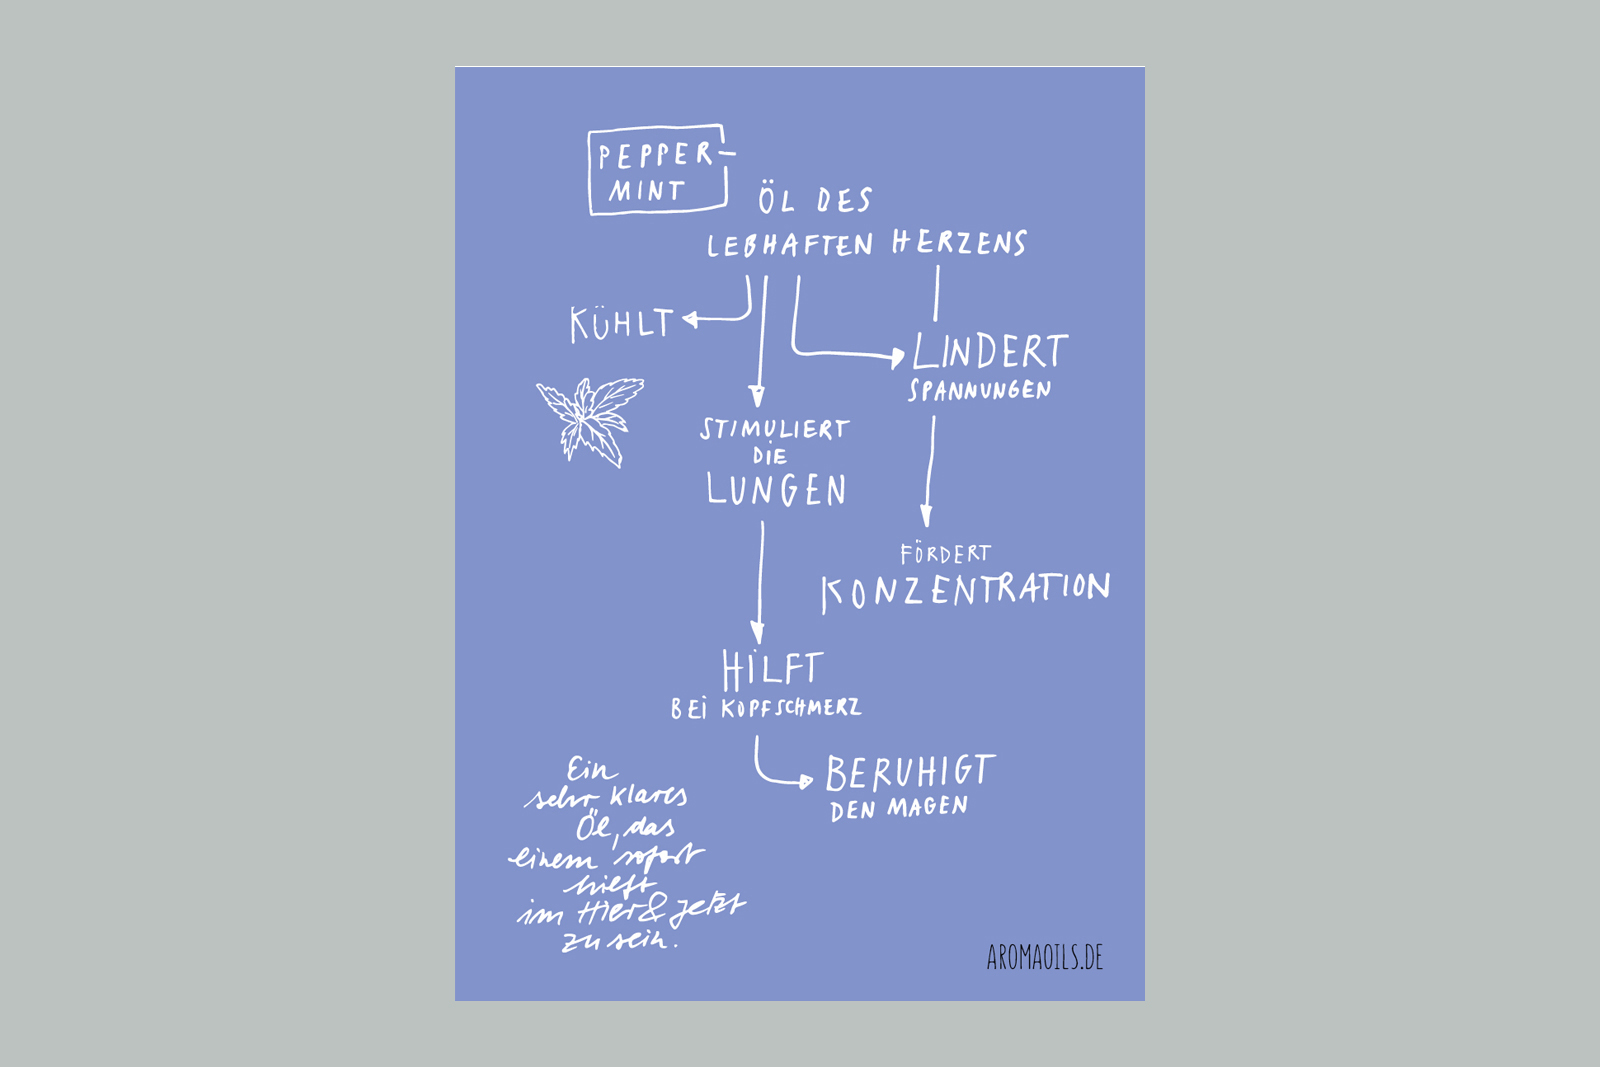 PEPPER-
MINT
ÖL DES
LEBHAFTEN HERZENS
KÜHLT
LINDERT
SPANNUNGEN
STIMULIERT
DIE
LUNGEN
FÖRDERT
KONZENTRATION
HILFT
BEI KOPFSCHMERZ
BERUHIGT
DEN MAGEN
Ein
sehr klares
Öl, das
einem sofort
hilft
im Hier & Jetzt
zu sein.
AROMAOILS.DE